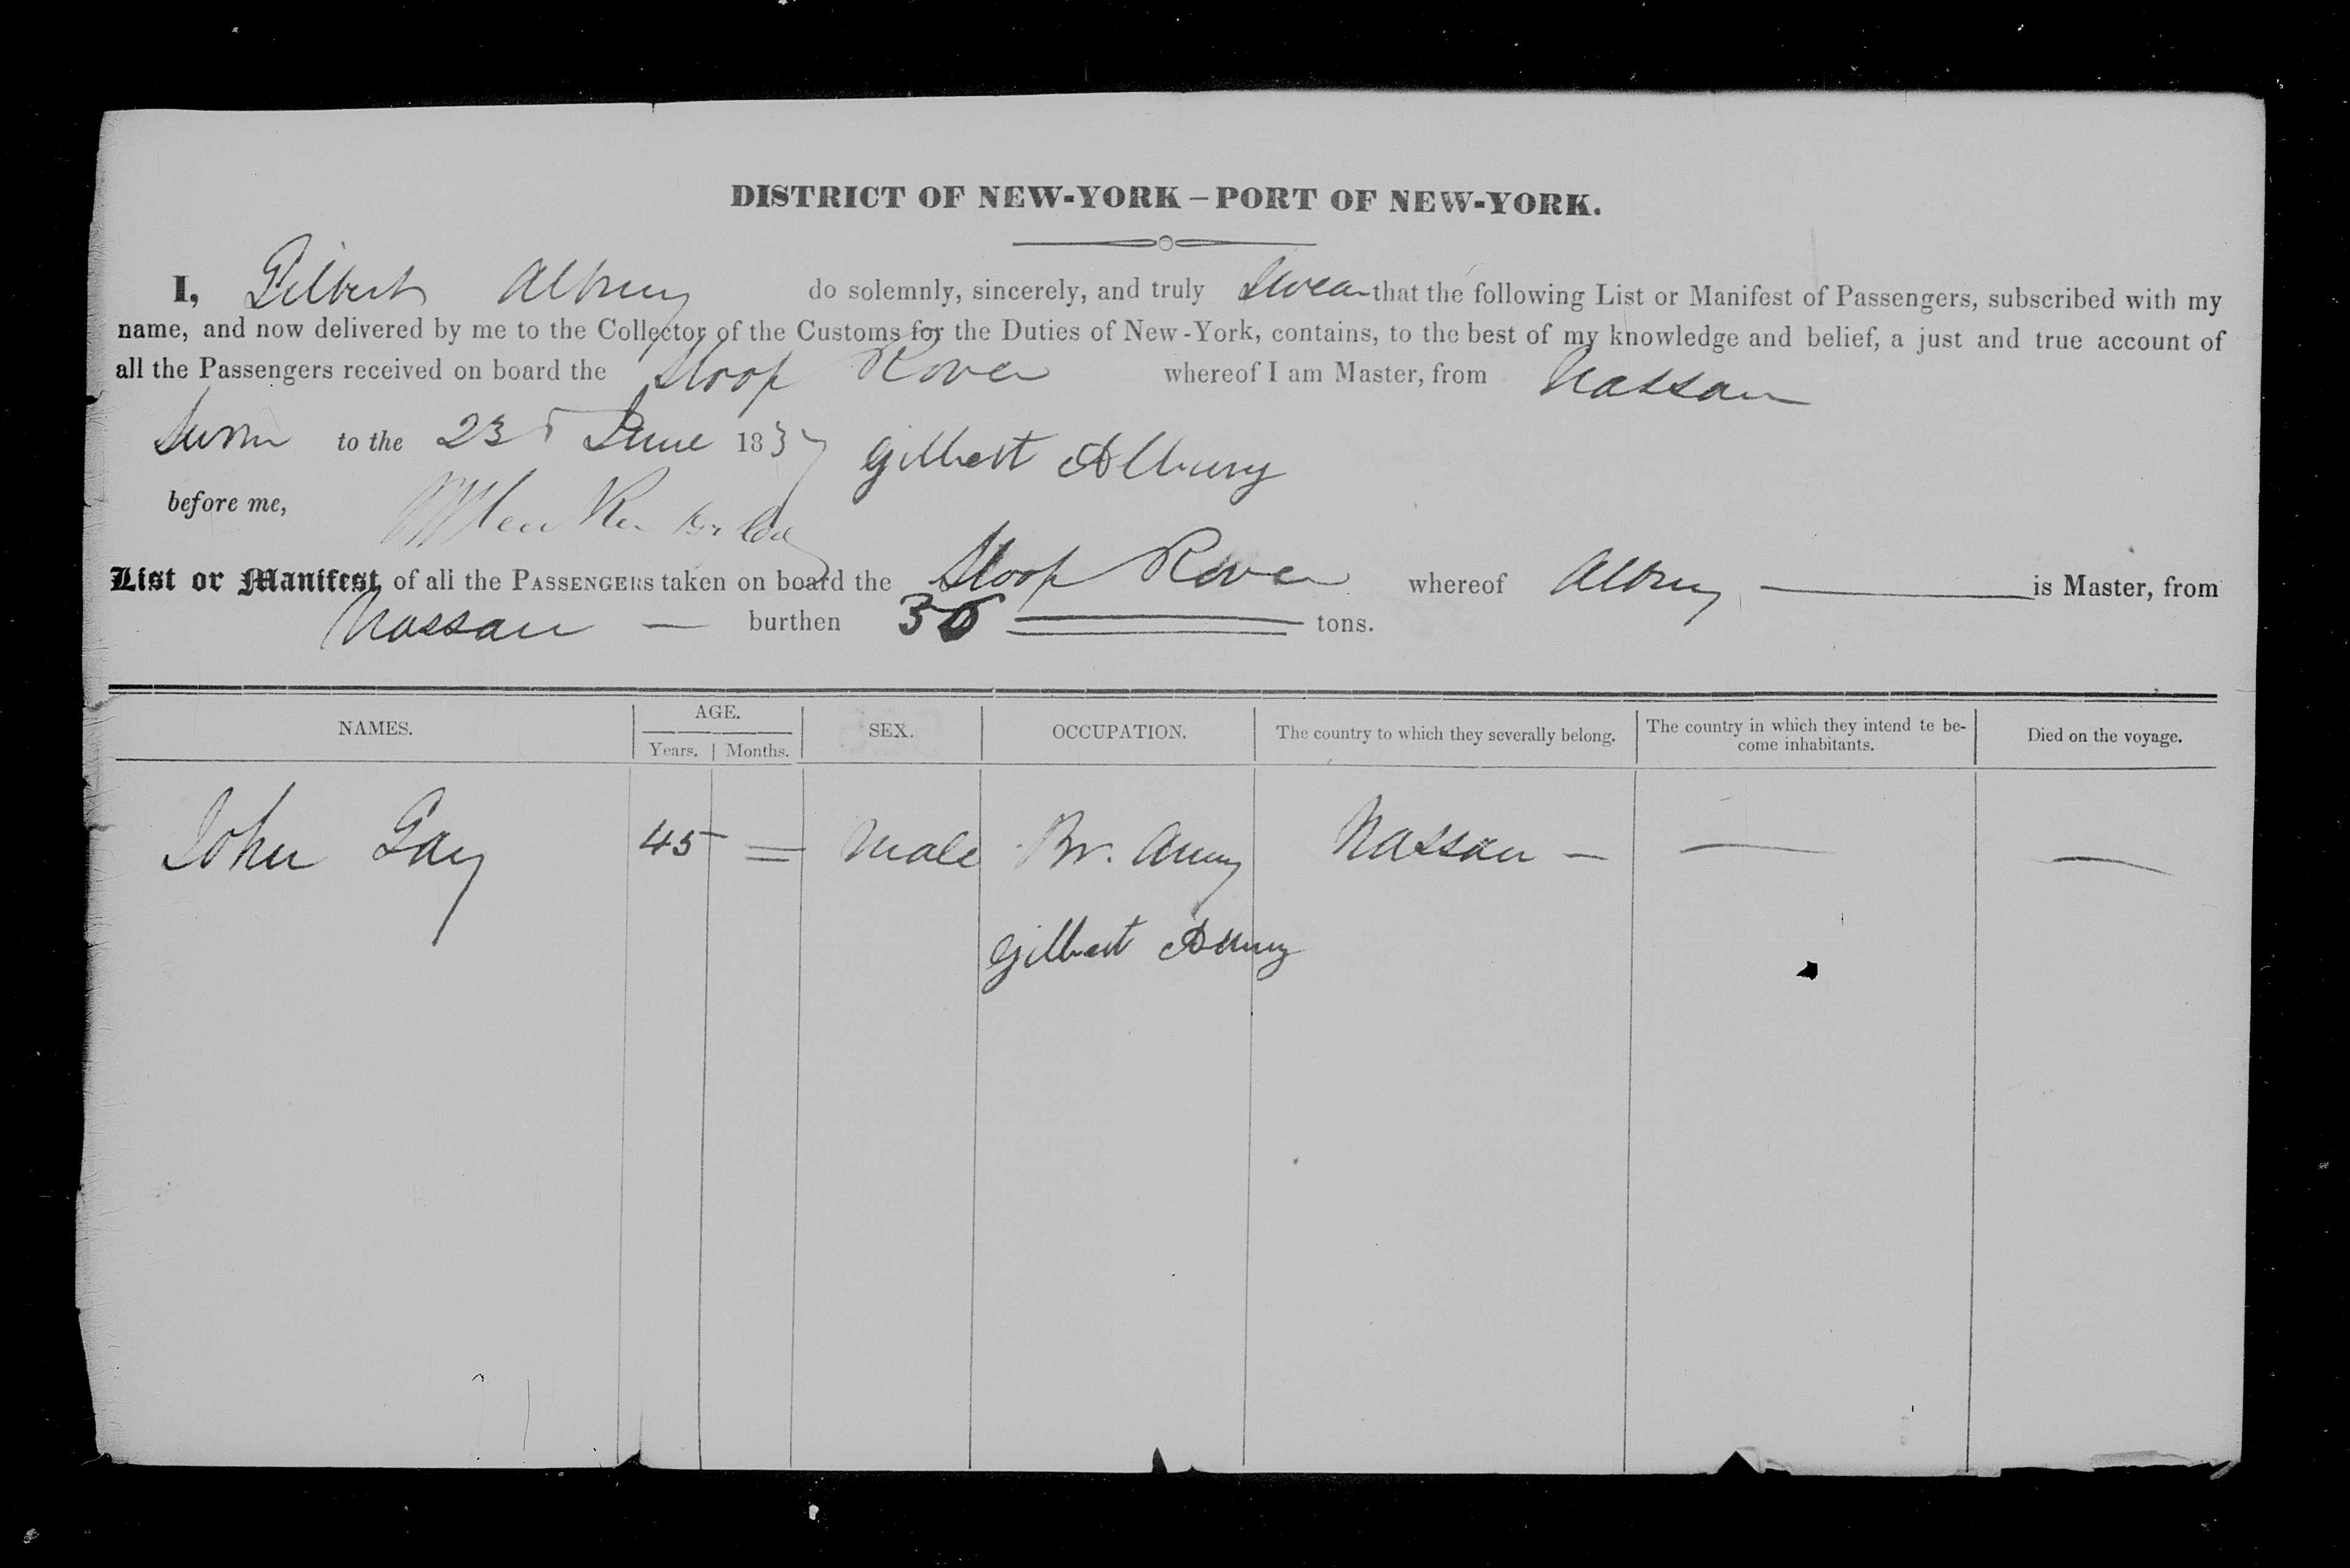 DISTRICT OF NEW-YORK – PORT OF NEW-YORK.
I, Gilbert Albury do solemnly, sincerely, and truly Swear that the following List or Manifest of Passengers, subscribed with my
name, and now delivered by me to the Collector of the Customs for the Duties of New-York, contains, to the best of my knowledge and belief, a just and true account of
all the Passengers received on board the Sloop Rover whereof I am Master, from Nassau
Sworn to the 23 June 1837 Gilbert Albury
before me,
List or Manifest, of all the PASSENGERS taken on board the Sloop Rover whereof Albury — is Master, from
Nassau — burthen tons.
NAMES. AGE. SEX. OCCUPATION. The country to which they severally belong. The country in which they intend te be-
come inhabitants. Died on the voyage.
Years. Months.
John Gay 45 = Male Br. Army Nassau — — —
Gilbert Albury